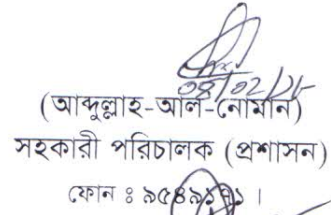 ০৪/০২/২৫
(আব্দুল্লাহ-আল-নোমান)
সহকারী পরিচালক (প্রশাসন)
ফোন ঃ ৯৫৪৯১৭১ ।